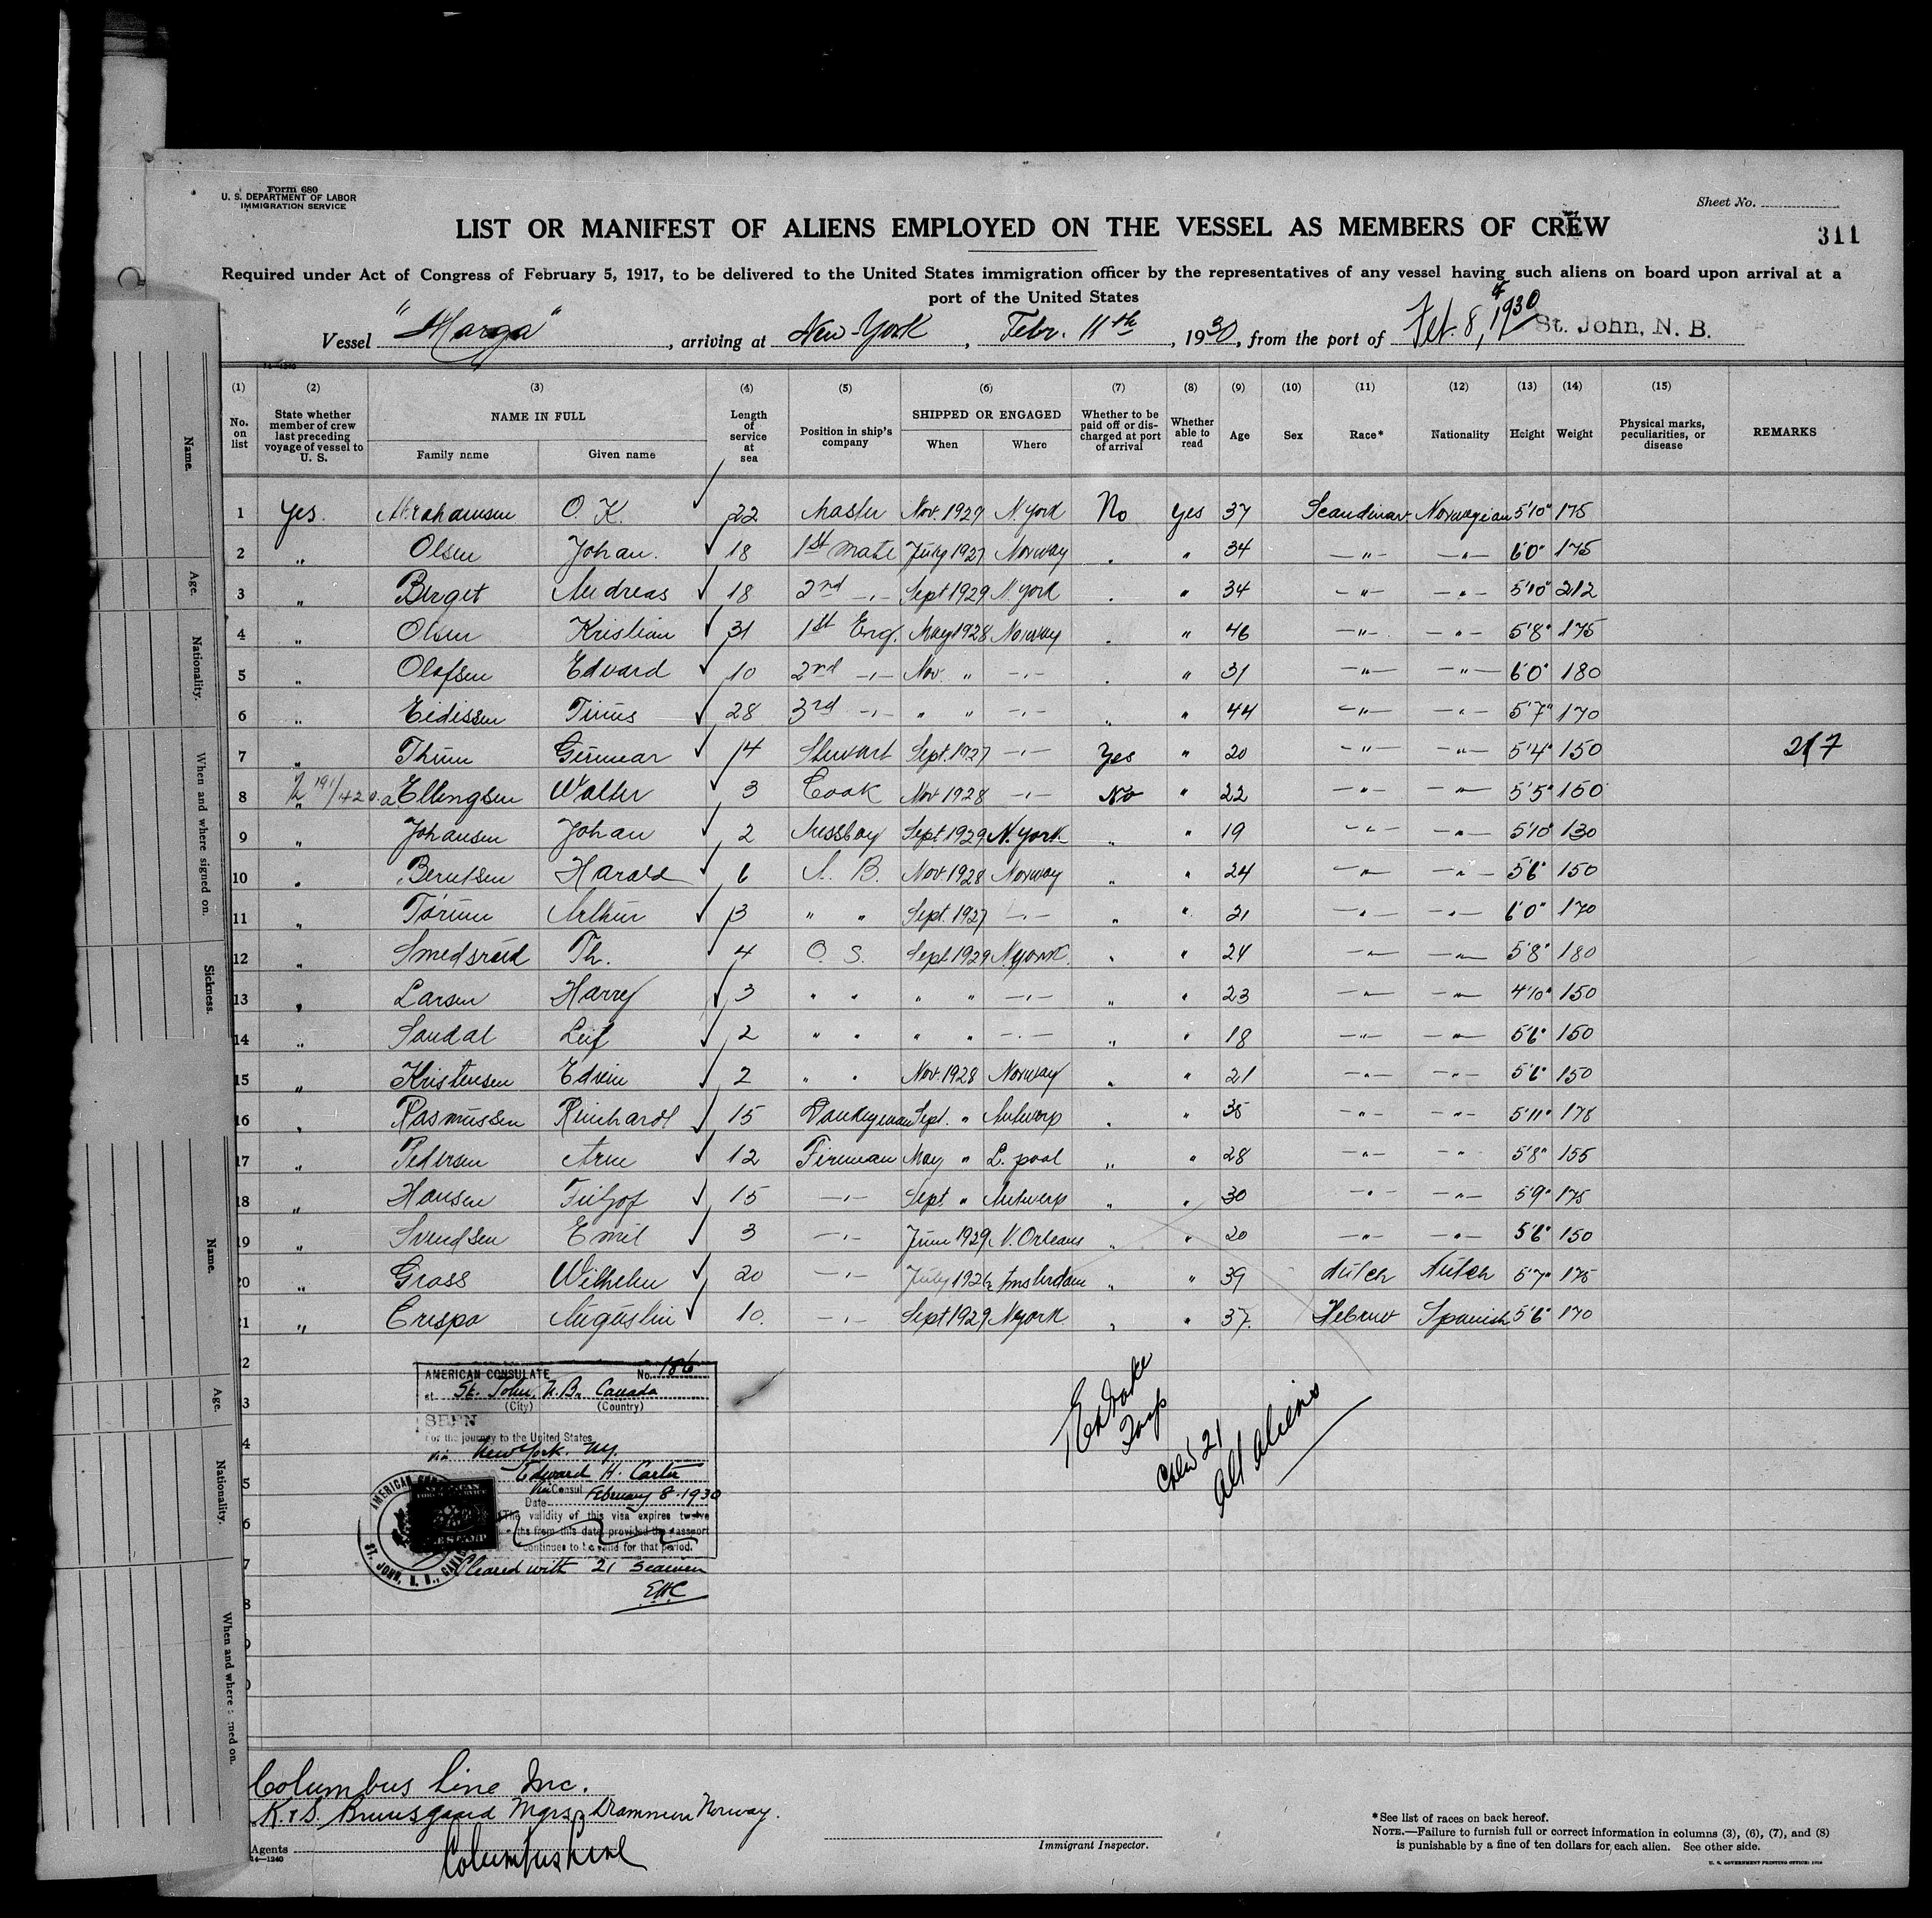 Form 680
U. S. DEPARTMENT OF LABOR
IMMIGRATION SERVICE
Sheet No.
LIST OR MANIFEST OF ALIENS EMPLOYED ON THE VESSEL AS MEMBERS OF CREW
311
Required under Act of Congress of February 5, 1917, to be delivered to the United States immigration officer by the representatives of any vessel having such aliens on board upon arrival at a
port of the United States
Vessel "Marga", arriving at New-York, Febr. 11th, 1930, from the port of Feb. 8, 1930 St. John, N. B.
14—1240
(1) (2) (3) (4) (5) (6) (7) (8) (9) (10) (11) (12) (13) (14) (15)
No. on list
State whether member of crew last preceding voyage of vessel to U. S.
NAME IN FULL
Family name
Given name
Length of service at sea
Position in ship's company
SHIPPED OR ENGAGED
When
Where
Whether to be paid off or discharged at port of arrival
Whether able to read
Age
Sex
Race*
Nationality
Height
Weight
Physical marks, peculiarities, or disease
REMARKS
1 Yes. Abrahamsen O. K. 22 Master Nov. 1929 N. York No Yes 37 Scandinav. Norwegian 5'10" 175
2 " Olsen Johan. 18 1st mate July 1927 Norway " " 34 —"— —"— 6'0" 175
3 " Berget Andreas 18 2nd —"— Sept 1929 N. York " " 34 —"— —"— 5'10" 212
4 " Olsen Kristian 31 1st Eng. May 1928 Norway " " 46 —"— —"— 5'8" 175
5 " Olafsen Edvard 10 2nd —"— Nov. " —"— " " 31 —"— —"— 6'0" 180
6 " Eidissen Tinus 28 3rd —"— " " —"— " " 44 —"— —"— 5'7" 170
7 " Thune Gunnar 14 Stewart Sept. 1927 —"— Yes " 20 —"— —"— 5'4" 150 217
8 " Ellingsen Walter 3 Cook Nov 1928 —"— No " 22 —"— —"— 5'5" 150
9 " Johansen Johan 2 Messboy Sept 1929 N. York " " 19 —"— —"— 5'10" 130
10 " Berntsen Harald 6 A. B. Nov. 1928 Norway " " 24 —"— —"— 5'6" 150
11 " Arthur 3 " " Sept. 1927 —"— " " 21 —"— —"— 6'0" 170
12 " Smedsrud Th. 4 O. S. Sept 1929 N. York " " 24 —"— —"— 5'8" 180
13 " Larsen Harry 3 " " " " —"— " " 23 —"— —"— 4'10" 150
14 " Sandal Leif 2 " " " " —"— " " 18 —"— —"— 5'6" 150
15 " Kristensen Edvin 2 " " Nov. 1928 Norway " " 21 —"— —"— 5'6" 150
16 " Rasmussen Reinhardt 15 Dankeyman Sept. " Antwerp " " 35 —"— —"— 5'11" 178
17 " Pedersen Arne 12 Fireman May " L. pool " " 28 —"— —"— 5'8" 155
18 " Hansen Fritjof 15 —"— Sept " Antwerp " " 30 —"— —"— 5'9" 175
19 " Svendsen Emil 3 —"— June 1929 N. Orleans " " 20 —"— —"— 5'6" 150
20 " Gross Wilhelm 20 —"— July 1926 Amsterdam " " 39 Dutch Dutch 5'7" 175
21 " Crespo Augustin 10. —"— Sept 1929 N. York " " 37. Hebrew Spanish 5'6" 170
AMERICAN CONSULATE No. 186
at St. John, N. B., Canada
(City) (Country)
SEEN
For the journey to the United States
via New York. N.Y.
Edward H. Carter
Vice Consul
Date February 8 - 1930
The validity of this visa expires twelve
months from this date, provided the passport
continues to be valid for that period.
Cleared with 21 Seamen
EHC
Crew 21
all aliens
Columbus Line Inc.
K. & S. Bruusgaard Mgrs, Drammen Norway.
Agents Columbus Line
14—1240
Immigrant Inspector.
*See list of races on back hereof.
NOTE.—Failure to furnish full or correct information in columns (3), (6), (7), and (8)
is punishable by a fine of ten dollars for each alien. See other side.
U. S. GOVERNMENT PRINTING OFFICE
Name.
Age.
Nationality.
When and where signed on.
Sickness.
Name.
Age.
Nationality.
When and where signed on.